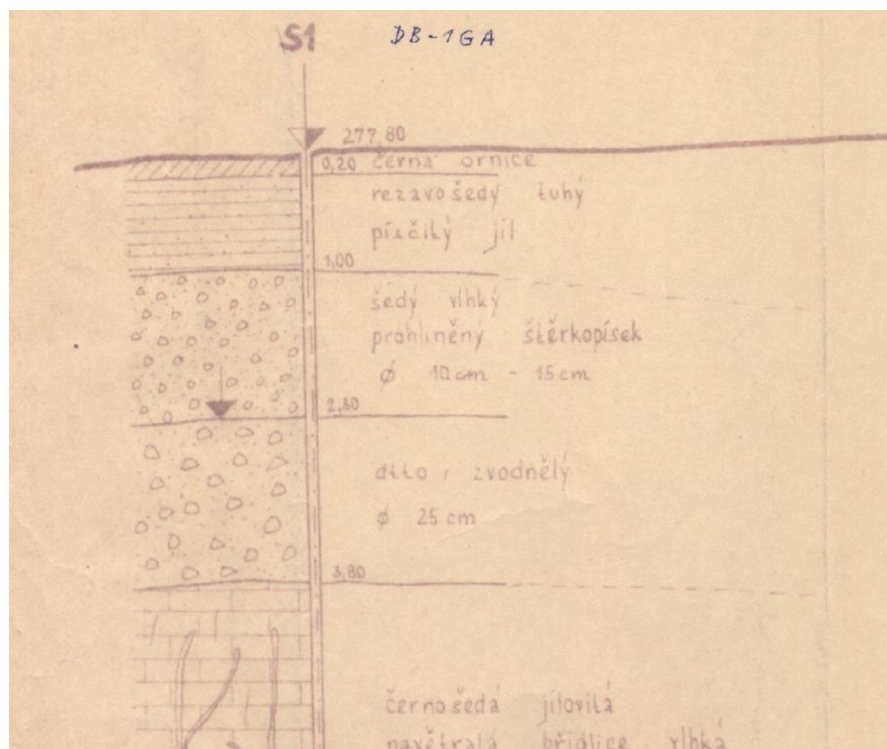 S1 DB-1GA
277,80
0,20 černá ornice
rezavošedý tuhý
písčitý jíl
1,00
šedý vlhký
prohliněný štěrkopísek
ϕ 10cm - 15cm
2,30
dtto, zvodnělý
ϕ 25 cm
3,80
černošedá jílovitá
navětralá břidlice vlhká